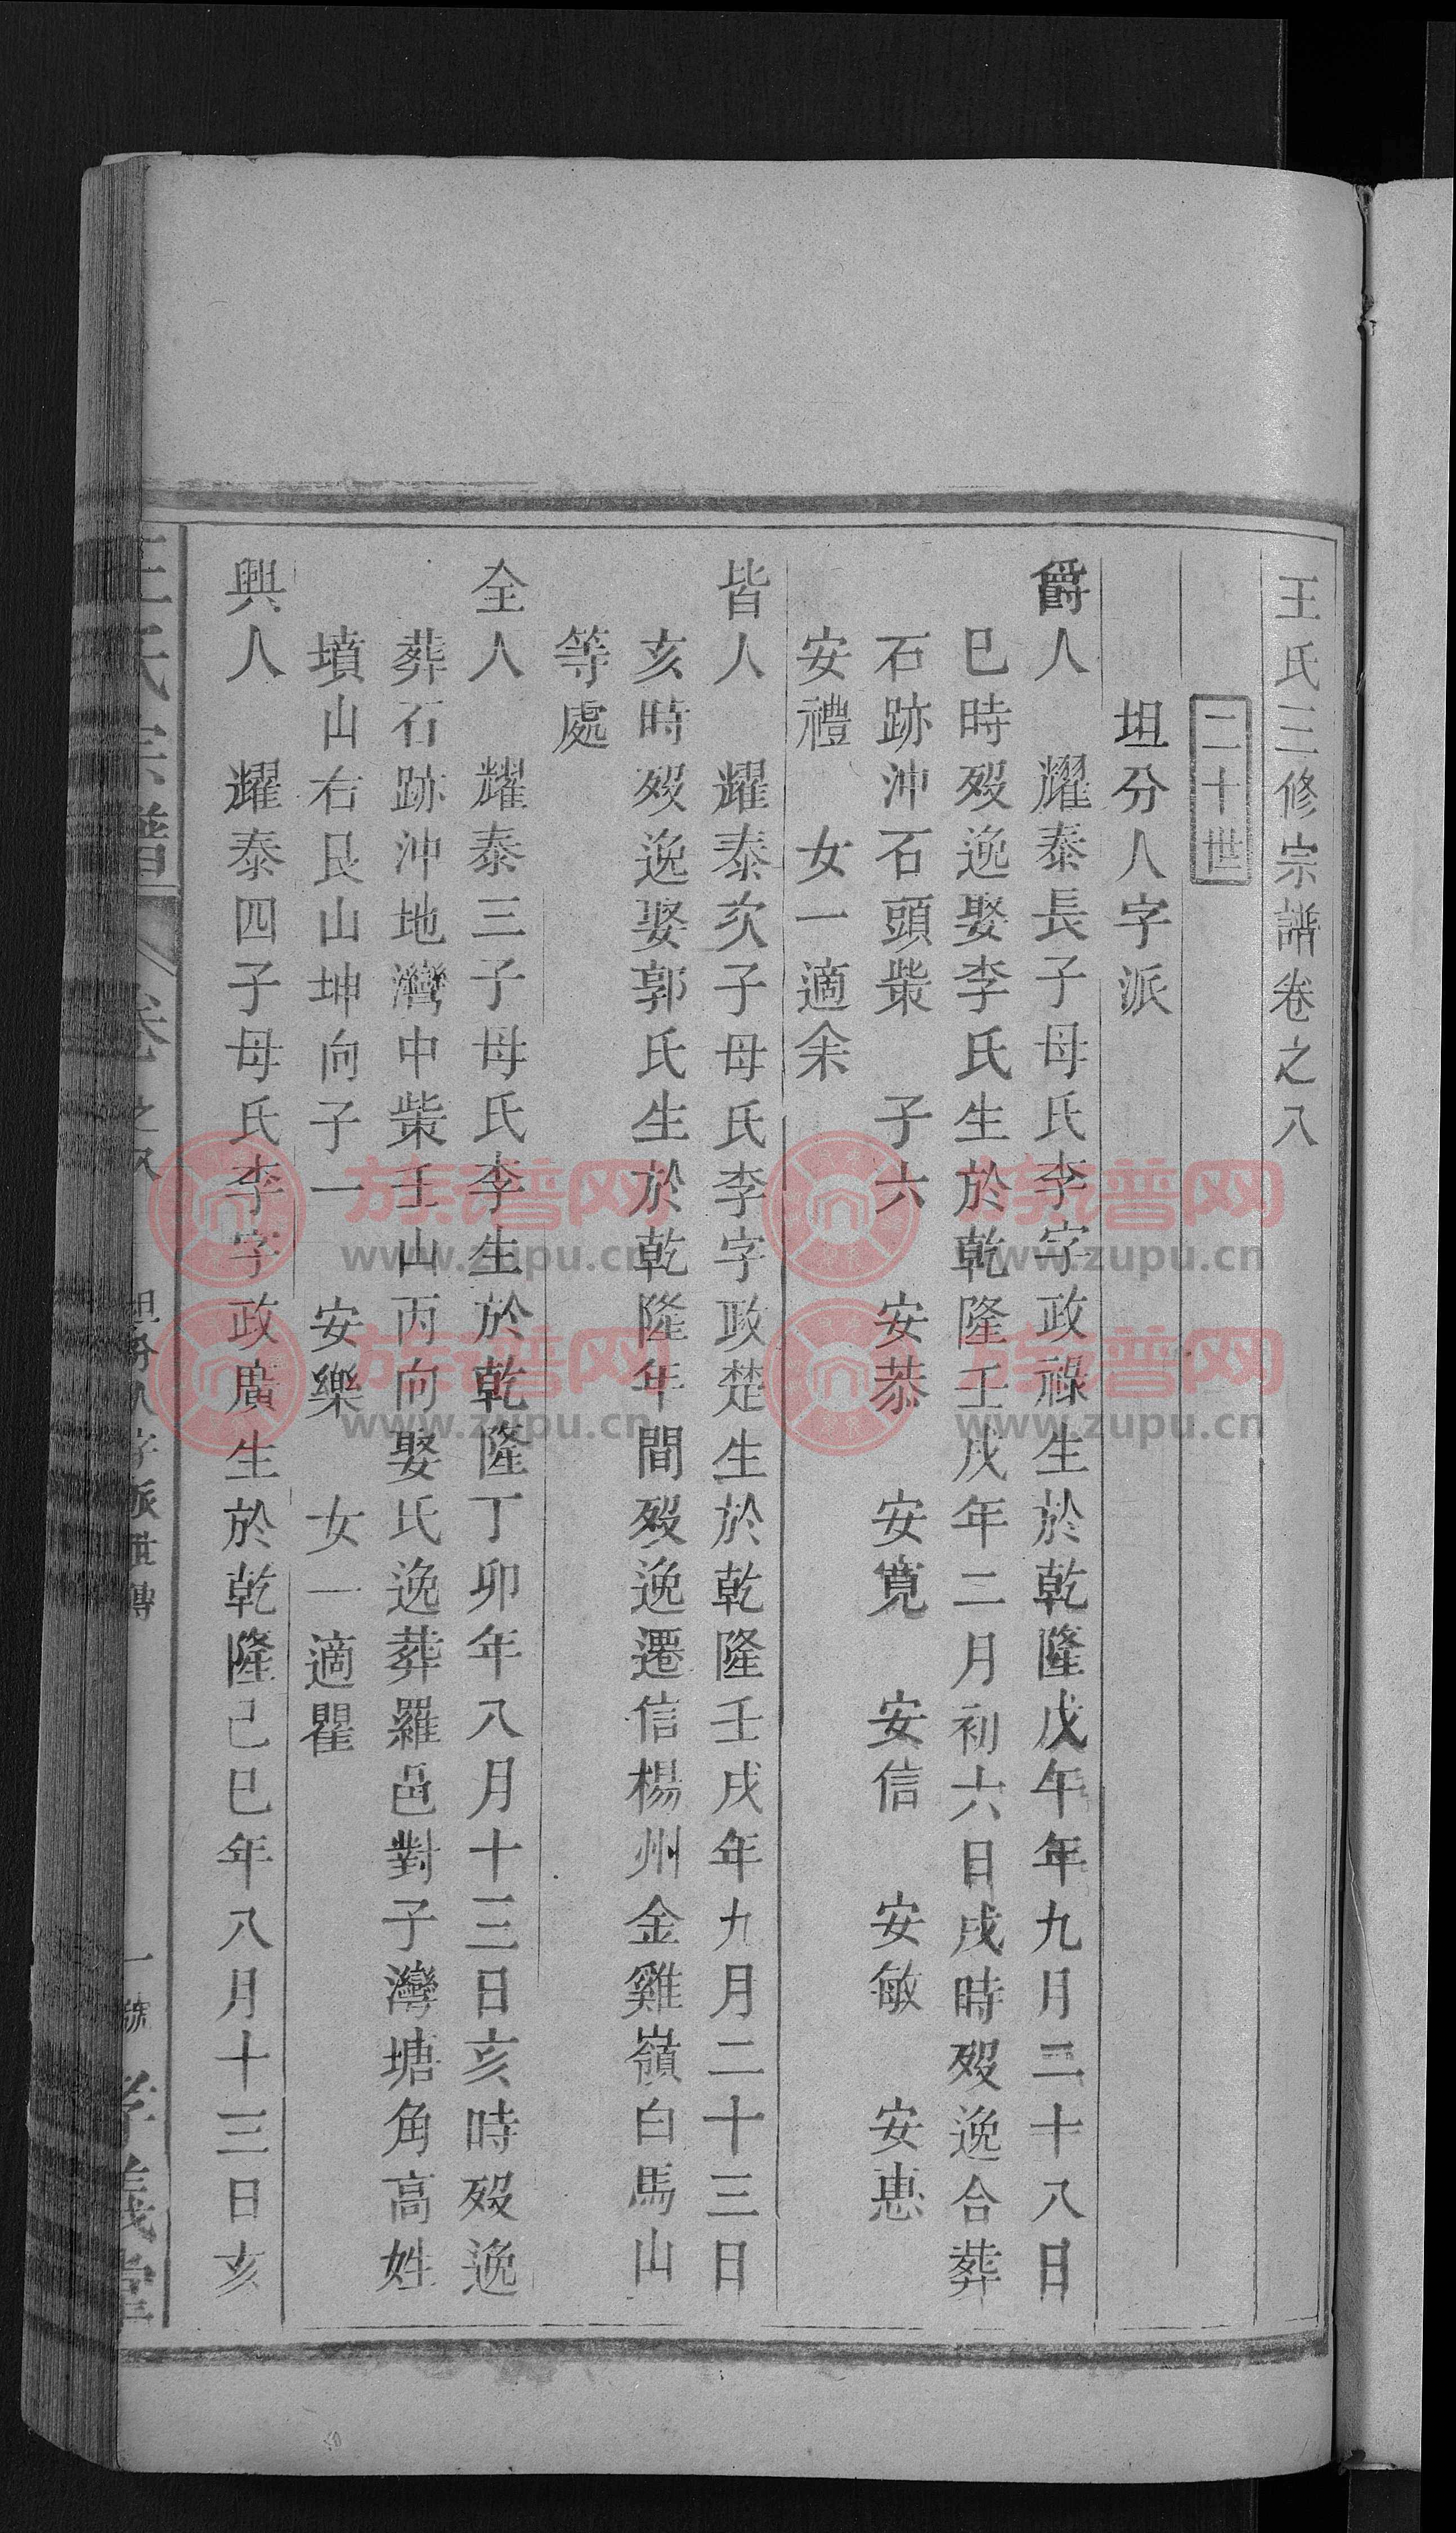 王氏三修宗譜卷之八
二十世
坦分人字派
爵人　耀泰長子母氏李字政祿生於乾隆戊午年九月二十八日
巳時歿逸娶李氏生於乾隆壬戌年二月初六日戌時歿逸合葬
石跡沖石頭柴　子六　安恭　安寬　安信　安敏　安惠
安禮　女一適余
皆人　耀泰次子母氏李字政楚生於乾隆壬戌年九月二十三日
亥時歿逸娶郭氏生於乾隆年間歿逸遷信楊州金雞嶺白馬山
等處
全人　耀泰三子母氏李生於乾隆丁卯年八月十三日亥時歿逸
葬石跡沖地灣中柴壬山丙向娶氏逸葬羅邑對子灣塘角高姓
墳山右艮山坤向子一　安樂　女一適瞿
興人　耀泰四子母氏李字政廣生於乾隆己巳年八月十三日亥
王氏宗譜　卷之八　坦分人字派世傳　一　孝義堂
族谱网
www.zupu.cn
族谱网
www.zupu.cn
族谱网
www.zupu.cn
族谱网
www.zupu.cn